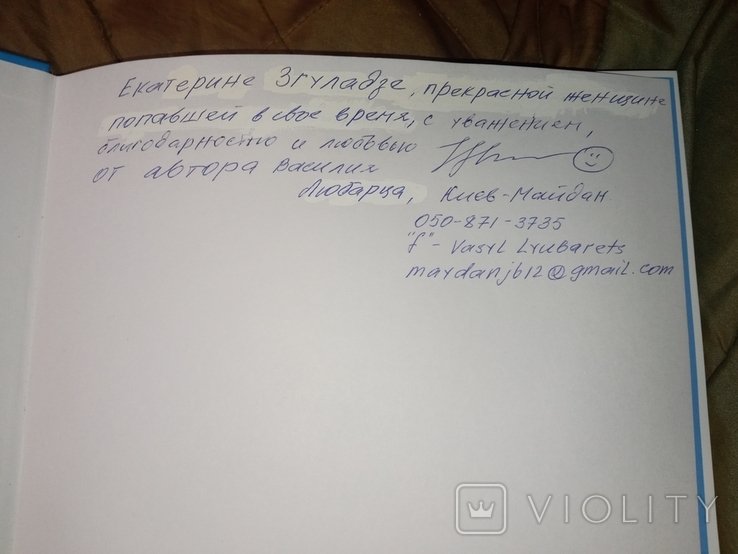 Екатерине Згуладзе, прекрасной женщине
попавшей в свое время, с уважением,
благодарностью и любовью
от автора Василия
Любарца, Киев-Майдан.
050-871-3735
"f" - Vasyl Lyubarets
maydanjb12@gmail.com
VIOLITY